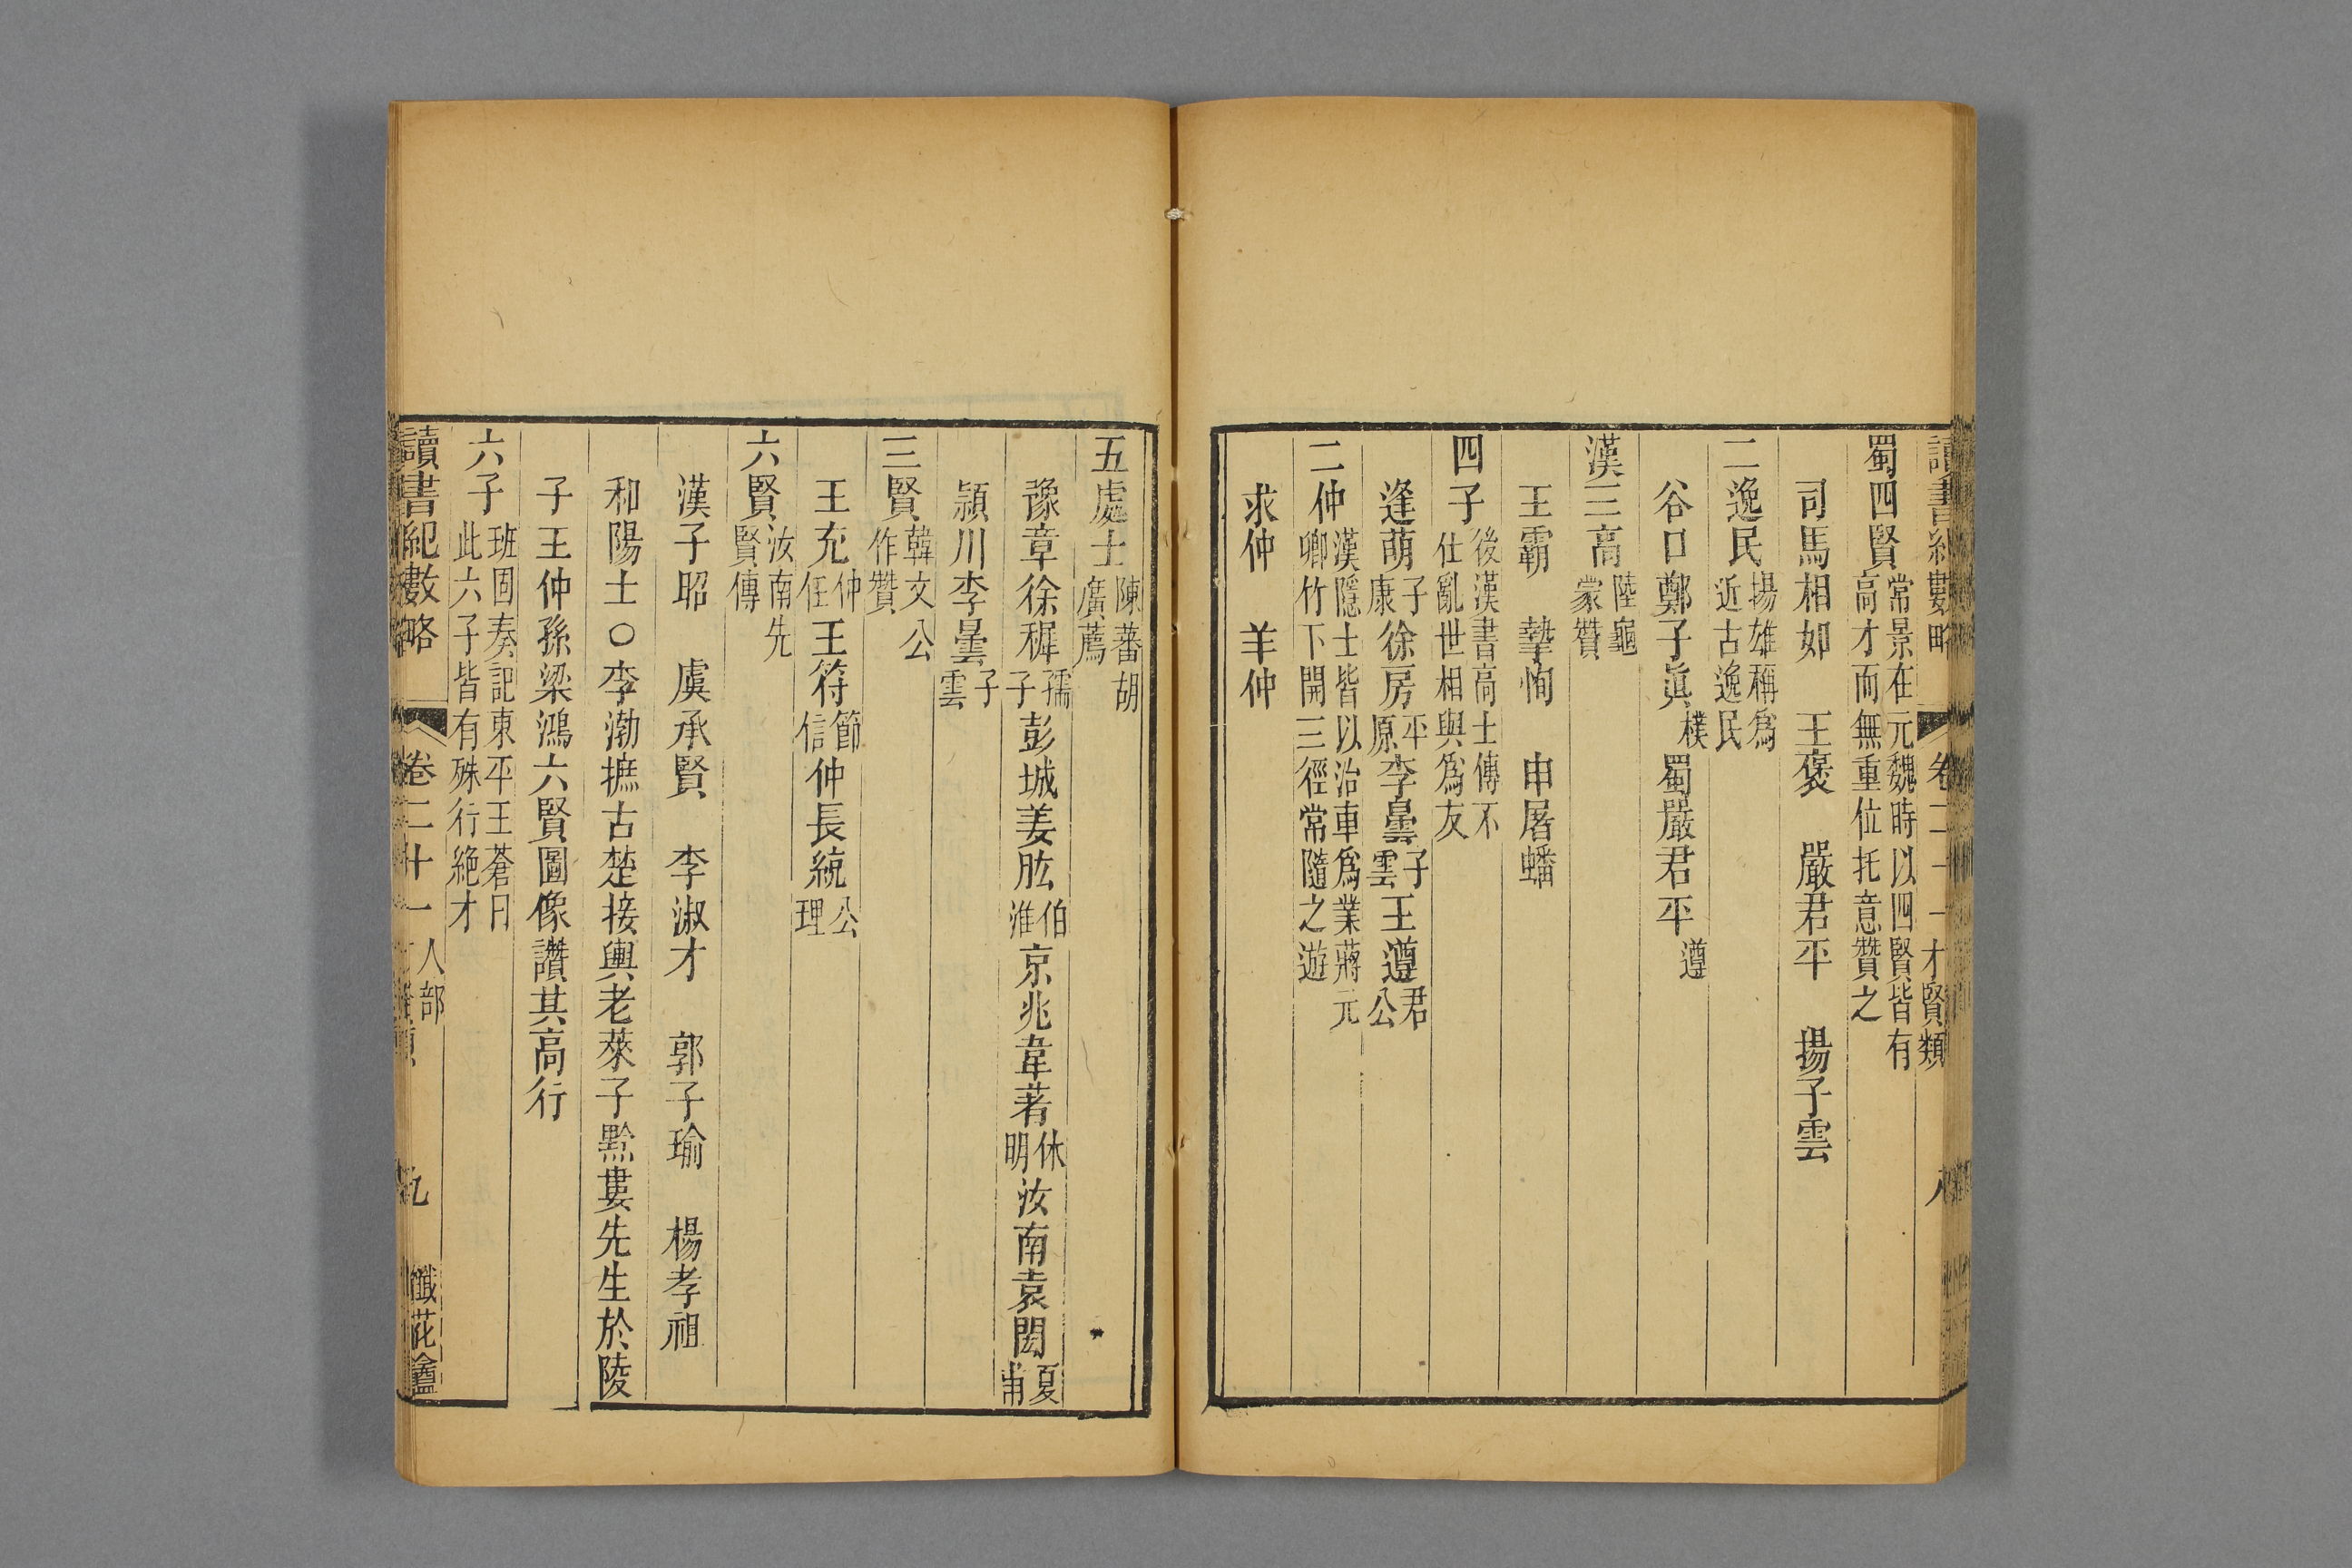 讀書紀數略 卷二十一 才賢類 八
蜀四賢 常景在元魏時以四賢皆有高才而無重位托意贊之
司馬相如 王褒 嚴君平 揚子雲
二逸民 揚雄稱爲近古逸民
谷口鄭子眞樸 蜀嚴君平遵
漢三高 陸龜蒙贊
王霸 摯恂 申屠蟠
四子 後漢書高士傳不仕亂世相與爲友
逢萌子康 徐房平原 李曇子雲 王遵君公
二仲 漢隱士皆以治車爲業蔣元卿竹下開三徑常隨之遊
求仲 羊仲
五處士 陳蕃胡廣薦
豫章徐穉孺子 彭城姜肱伯淮 京兆韋著休明 汝南袁閎夏甫
潁川李曇子雲
三賢 韓文公作贊
王充仲任 王符節信 仲長統公理
六賢 汝南先賢傳
漢子昭 虞承賢 李淑才 郭子瑜 楊孝祖
和陽士○李渤摭古楚接輿老萊子黔婁先生於陵
子王仲孫梁鴻六賢圖像讚其高行
六子 班固奏記東平王蒼曰此六子皆有殊行絶才
讀書紀數略 卷二十一 人部 九 懺花盦